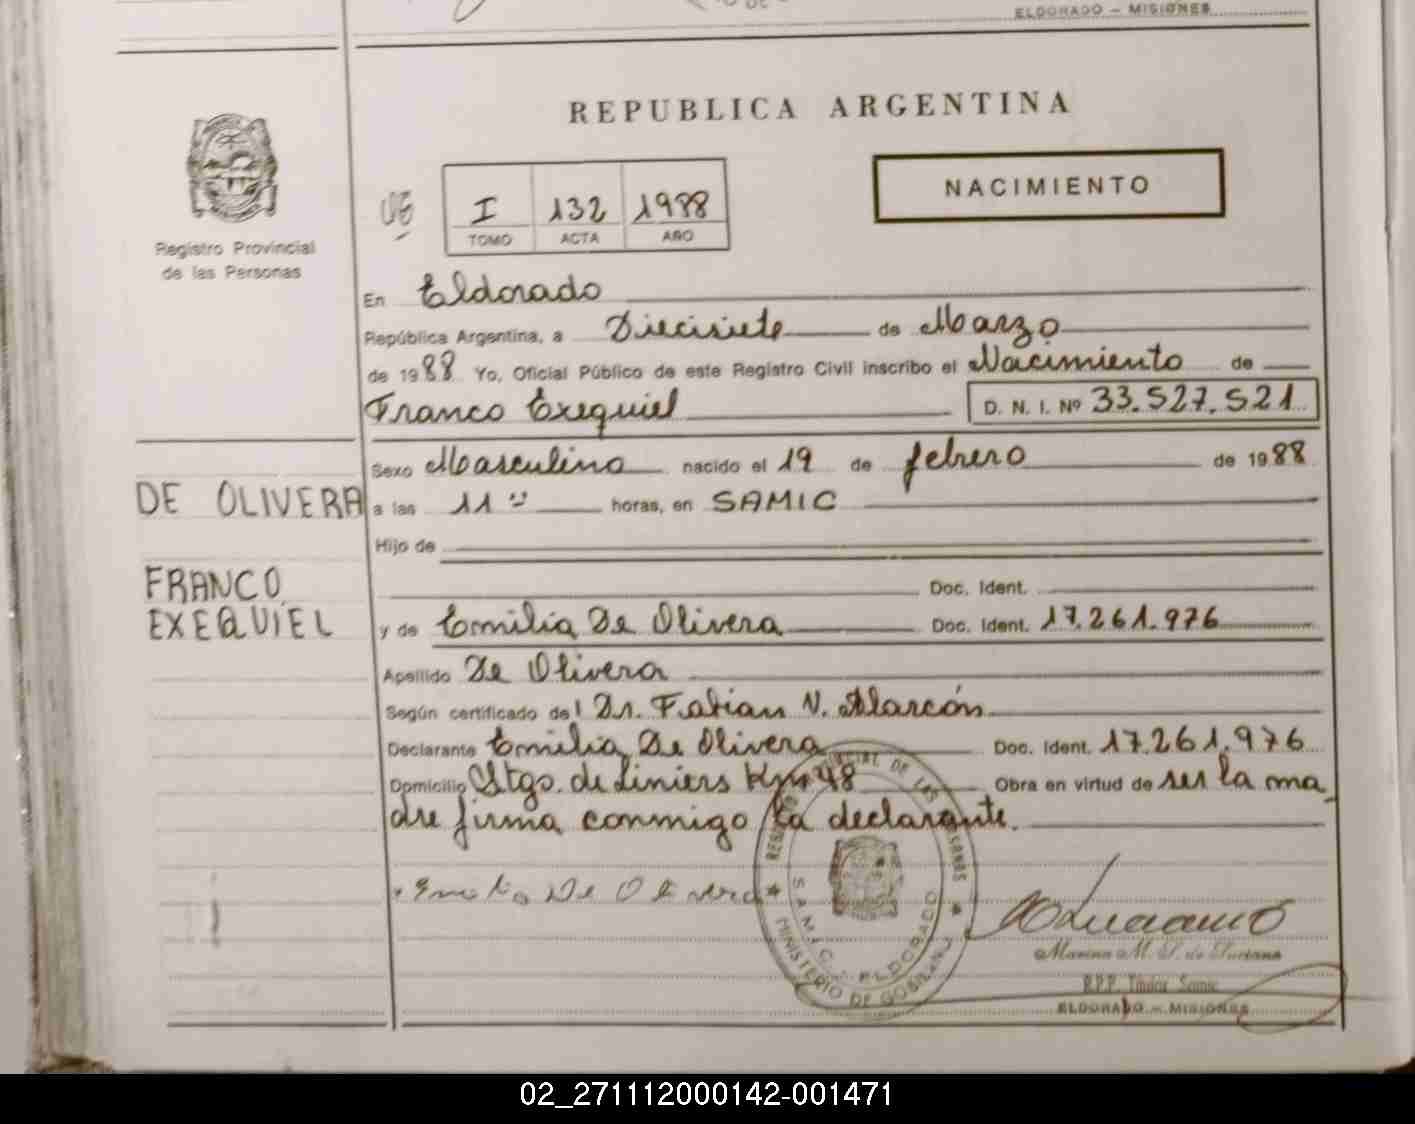 ELDORADO - MISIONES
REPUBLICA ARGENTINA
NACIMIENTO
I 132 1988
TOMO ACTA AÑO
Registro Provincial
de las Personas
En Eldorado
República Argentina, a Diecisiete de Marzo
de 1988 Yo, Oficial Público de este Registro Civil inscribo el Nacimiento de
Franco Exequiel D. N. I. Nº 33.527.521
Sexo Masculino nacido el 19 de febrero de 1988
DE OLIVERA
a las 11 horas, en SAMIC
Hijo de
FRANCO
EXEQUIEL
Doc. Ident.
y de Emilia De Olivera Doc. Ident. 17.261.976
Apellido De Olivera
Según certificado del Dr. Fabian N. Alarcón
Declarante Emilia De Olivera Doc. Ident. 17.261.976
Domicilio Stgo. de Liniers Km 48 Obra en virtud de ser la ma-
dre firma conmigo la declarante.
Emilia De Olivera
REGISTRO PROVINCIAL DE LAS PERSONAS
S.A.M.I.C. - ELDORADO
MINISTERIO DE GOBIERNO
Marina M. S. de Luciano
R.P.P. Titular Samic
ELDORADO - MISIONES
02_271112000142-001471